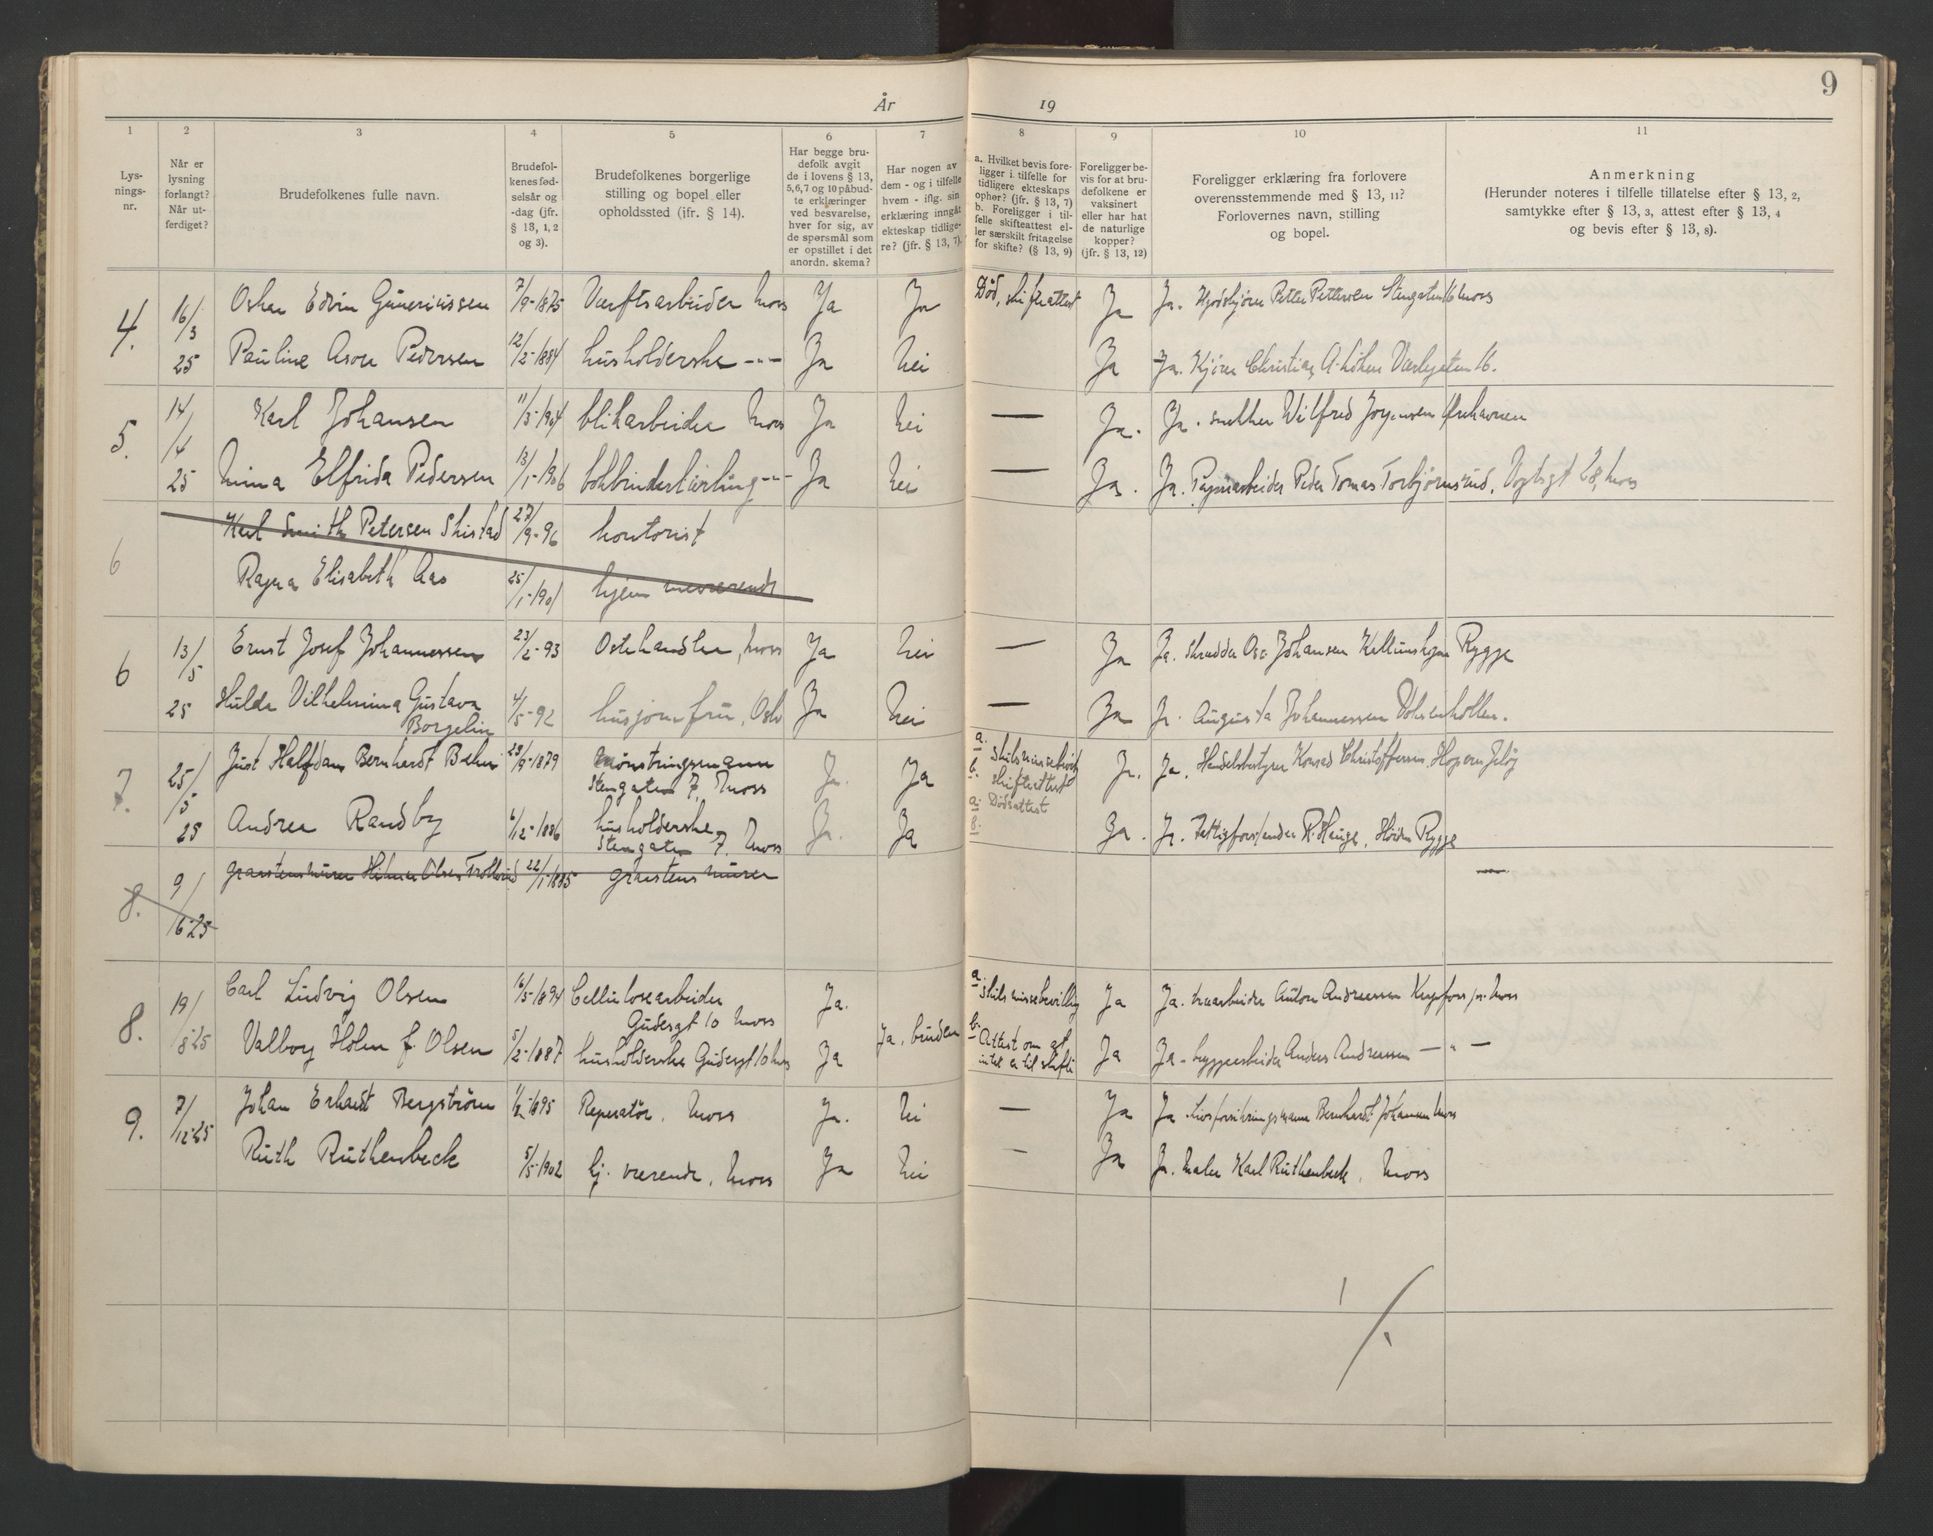 År
19
9
1
2
3
4
5
6
7
8
9
10
11
Lys-
nings-
nr.
Når er
lysning
forlangt?
Når ut-
ferdiget?
Brudefolkenes fulle navn.
Brudefol-
kenes fød-
selsår og
-dag (jfr.
§ 13, 1, 2
og 3).
Brudefolkenes borgerlige
stilling og bopel eller
opholdssted (ifr. § 14).
Har begge bru-
defolk avgit
de i lovens § 13,
5,6,7 og 10 påbud-
te erklæringer
ved besvarelse,
hver for sig, av
de spørsmål som
er opstillet i det
anordn. skema?
Har nogen av
dem - og i tilfelle
hvem - iflg. sin
erklæring inngåt
ekteskap tidlige-
re? (jfr. § 13, 7).
a. Hvilket bevis fore-
ligger i tilfelle for
tidligere ekteskaps
ophør? (jfr. § 13, 7)
b. Foreligger i til-
felle skifteattest el-
ler særskilt fritagelse
for skifte? (§ 13, 9)
Foreligger be-
vis for at bru-
defolkene er
vaksinert
eller har hat
de naturlige
kopper?
(jfr. § 13, 12)
Foreligger erklæring fra forlovere
overensstemmende med § 13, 11?
Forlovernes navn, stilling
og bopel.
Anmerkning
(Herunder noteres i tilfelle tillatelse efter § 13, 2,
samtykke efter § 13, 3, attest efter § 13, 4
og bevis efter § 13, 8).
4. 16/3 25 Oskar Edvin Guneriussen 7/9-1875 Verftsarbeider Moss Ja Ja Død, skifteattest Ja Ja. Petter Pettersen Stengaten 16 Moss
Pauline Pedersen 12/2-1884 husholderske -"- Ja Nei Ja Ja. Kjører Christian A.
5. 14/4 25 Karl Johansen 11/3-1904 blikarbeider Moss Ja Nei — Ja. Ja. snekker Wilfred Jørgensen
Elfrida Pedersen 13/1-1906 bokbinderlærling -"- Ja Nei — Ja. Ja. Papirarbeider Peder Tomas Torbjørnsrud, Vogtsgt Moss
6 Karl Smith Petersen Skistad 27/9-96 kontorist
Ragna Elisabeth Aas 25/1-1901 hjemmeværende
6 13/5 25 Ernst Josef Johannessen 23/2-93 Ostehandler, Moss Ja Nei — Ja Ja. Skredder Johansen Rygge
Hulda Vilhelmina Gustava
Borgelin 4/5-92 husjomfru, Oslo Ja Nei — Ja Ja. Augusta Johannessen
7. 25/5 25 Just Halfdan Bernhardt 23/9-1879 Mønstringsmann
Stengaten 7, Moss Ja. Ja a. Skilsmissebevis
b. skifteattest Ja. Ja. Handelsbestyrer Konrad Christoffersen, Jeløy
Andrea Randby 6/12-1886 husholderske
Stengaten 7, Moss Ja. Ja a. Dødsattest
b. Ja. Ja. Fattigforstander R. Hauge, Rygge
8. 9/6-25 granstensmurer Hilmar Olsen 22/1-1885 granstensmurer —
8. 19/8-25 Carl Ludvig Olsen 16/5-1894 Cellulosearbeider
Gudesgt 10 Moss Ja. a. Skilsmissebevilling Ja Ja. Anton Andreassen Moss
Valborg Holm f. Olsen 5/2-1887 husholderske Gudesgt 10 Moss Ja Ja, bruden b. Attest om at
intet er til skifte Ja Ja. byggearbeider Anders Andreassen — " —
9. 7/12-25 Johan Erhardt Bergstrøm 1895 Reperatør, Moss Ja. Nei — Ja Ja. Livsforsikringsmann Bernhardt Johansen Moss
Ruth Ruthenbeck 5/5-1902 hj. værende, Moss Ja Nei — Ja Ja. Maler Karl Ruthenbeck, Moss